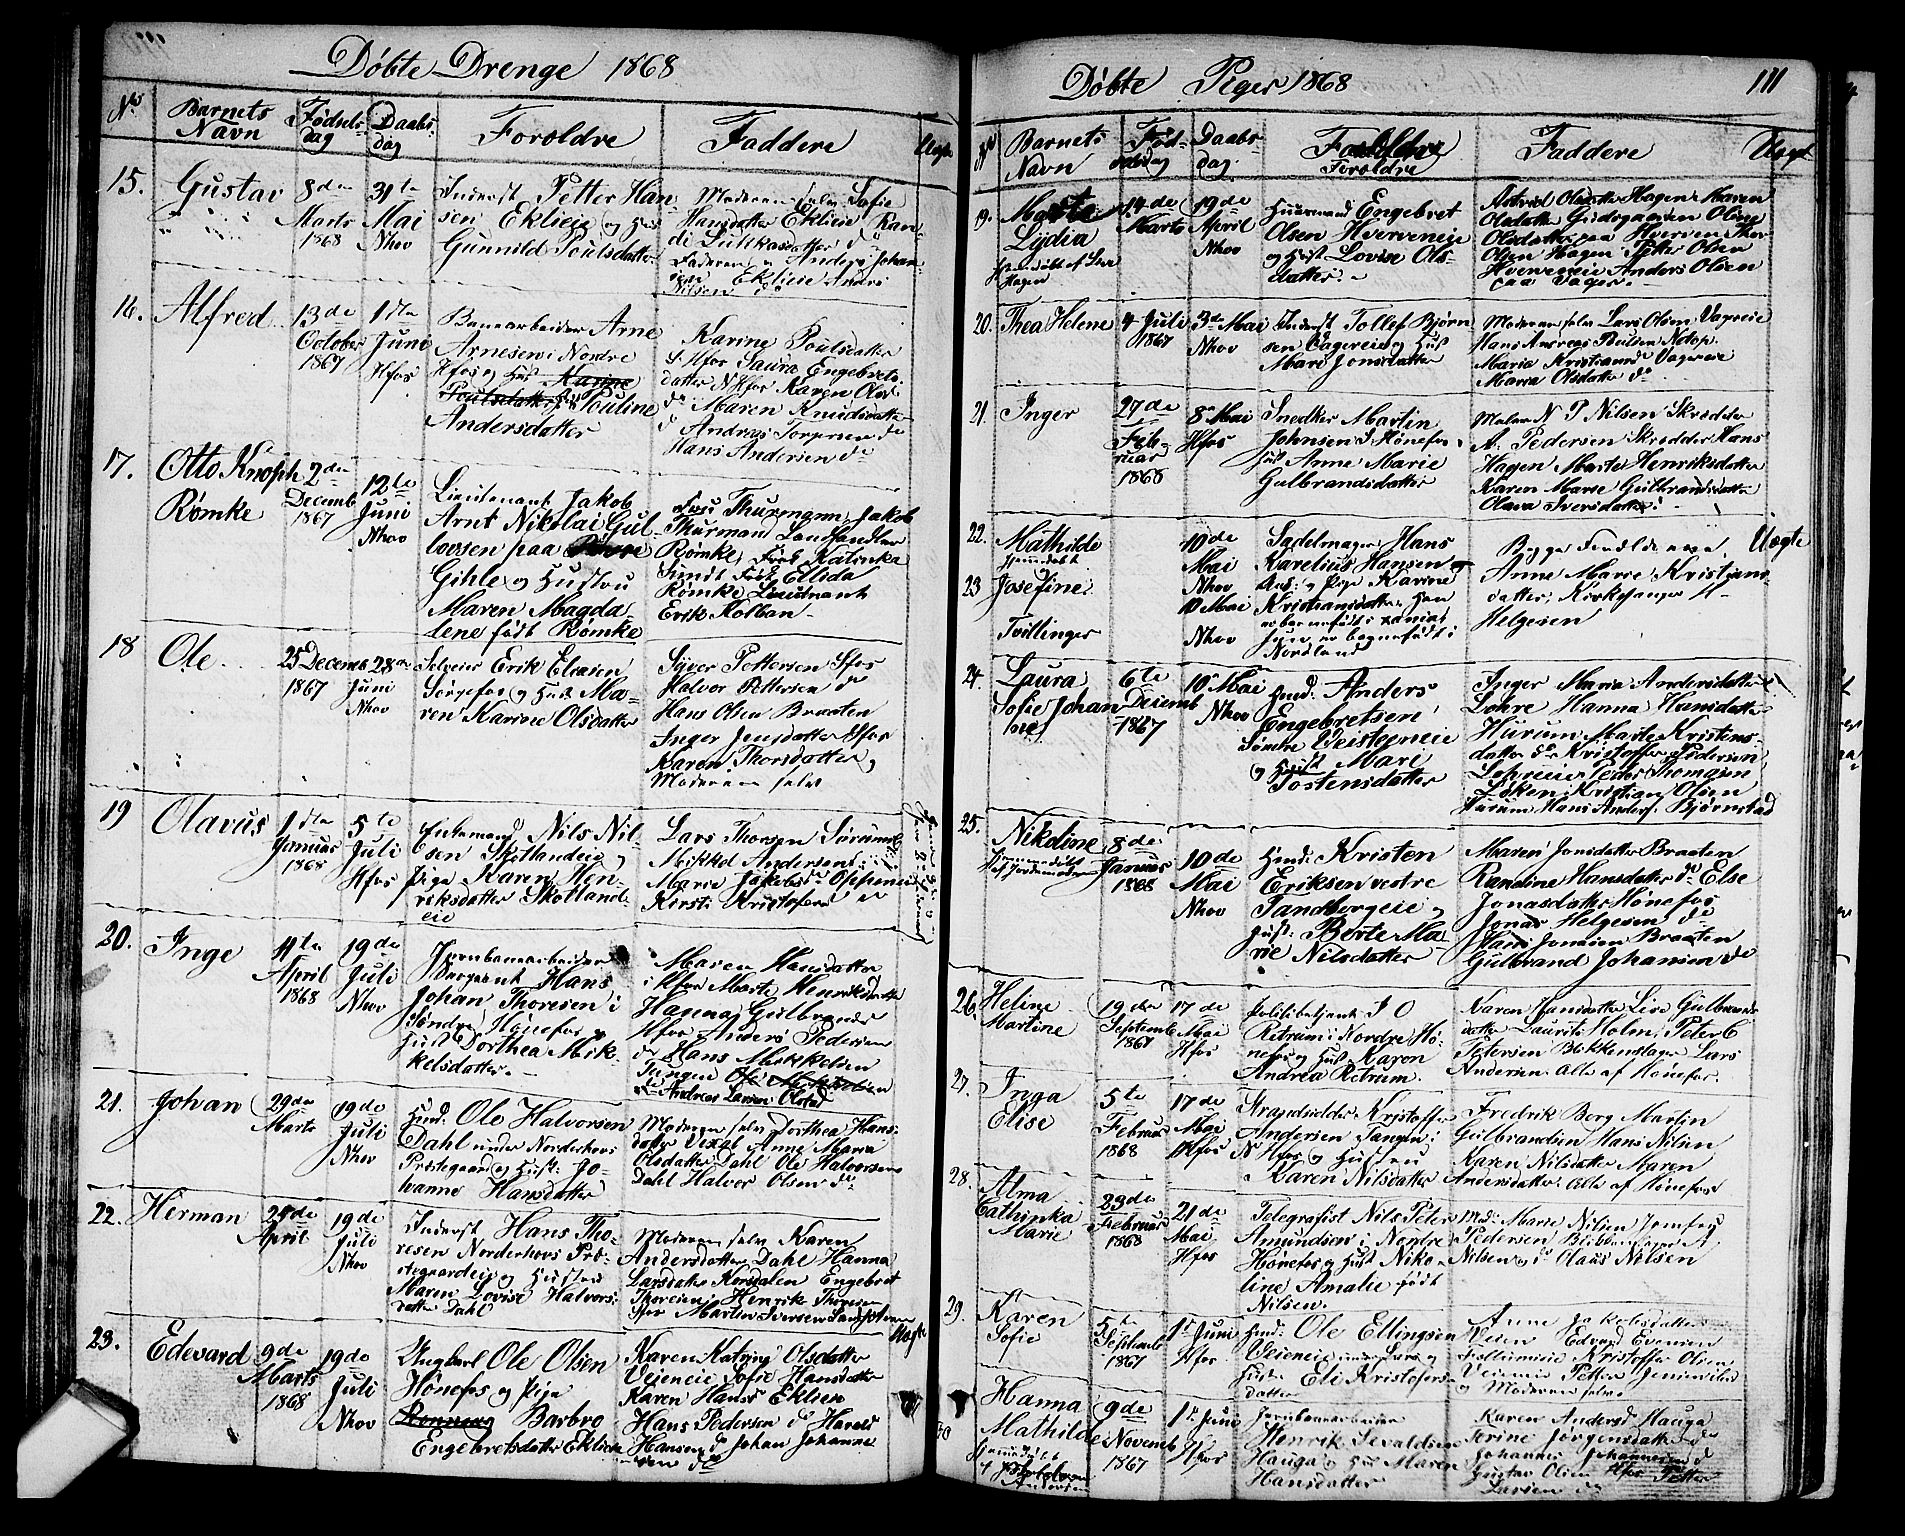 Døbte Drenge 1868
No Barnets Navn Fødselsdag Daabsdag Foroldre Faddere Uægte
15. Gustav 8de Marts 1868 31te Mai Nhov
Inderst Petter Han
sen Eklieie og Hust
Gunnild Poulsdatter
Moderen selv Sofie
Hansdatter Eklieie Ran
di Lukkasdatter do
Faderen og Anders Johan
sen Eklieie Anders
Nilsen do
16. Alfred 13de October 1867 1ste Juni Hfos
Banearbeider Arne
Arnesen i Nordre
Hfos og Hust Karine
Poulsdatter Pouline
Andersdatter
Karine Poulsdatter
S. Hfos Laura Engebrets
datter N Hfos Karen Olsd
do Maren Knudsdatter
do Andreas Torgersen do
Hans Andersen do
17. Otto Knoph Rømke 2den Decemb 1867 12te Juni Nhov
Lieutenant Jakob
Arnt Nikolai Gul
lovsen paa
Gihle og Hustru
Maren Magda
lene født Rømke
Fru Thurmann Jakob
Thurmann Landhandler
Rømke Frøk Katinka
Sundt Frøk Ellida
Rømke Lieutnant
Erik Kolban
18 Ole 25 Decemb 1867 28de Juni Nhov
Selveier Erik
Sørgefos og Hust Ma-
ren Karine Olsdatter
Syver Pettersen Hfos
Halvor Pettersen do
Hans Olsen Braaten
Inger Jensdatter Hfos
Karen Thorsdatter og
Moderen selv
19 Olavus 1ste Januar 1868 5te Juli Hfos
Enkemand Nils Nil-
sen Skotlandeie og
Pige Karen Hen-
riksdatter Skotland-
eie
Lars Thorsen Sørum
Mikkel Andersen
Marie Jakobsd Oppeneie
Kersti Kristofersd do
20. Inge 4te April 1868 19de Juli Nhov
Jernbanearbeider
Sergeant Hans
Johan Thoresen i
Søndre Hønefos og
Hust Dorthea Mik-
kelsdatter.
Maren Hansdatter
i Hfos Marte Henriksdatter
Hanna Gulbrands
Hfos Anders Pedersen
do Hans Mikkelsen
Tangen Ole Mikkelsen
do Andreas Larsen Olstad
21. Johan 29de Marts 19de Juli Nhov
Husd. Ole Halvorsen
Dahl under Norderhovs
Præstegaard og Hust: Jo-
hanne Hansdatter
Moderen selv Dorthea Hans-
datter Anne Maria
Olsdatter Dahl Ole Halvorsen
Dahl Halvor Olsen do
22. Herman 24de April 19de Juli Nhov
Inderst Hans Tho-
resen Norderhovs Præ-
stegaardeie og Hustru
Maren Lovise Halvors-
datter Dahl
Moderen selv Karen
Andersdatter Dahl Hanna
Larsdatter Korsdalen Engebret
Thoresen Henrik Thoresen
Hfos Martin Iversen
23. Edevard 9de Marts 1868 19de Juli Nhov
Ungkarl Ole Olsen
Hønefos og Pige
Barbro
Engebretsdatter Eklieie
Karen Katrine Olsdatter
Veieneie Sofie Hansdatter
Karen Hansd Eklieie
Hans Pedersen do Harald
Hansen do Johan Johanne
sen do
Uægte
Døbte Piger 1868 111
No Barnets Navn Fødselsdag Daabsdag. Foroldre Faddere Uægt
19. Marta Lydia 14de Marts 19de April Nhov
hjemmedøbt af Hagen
Huusmand Engebret
Olsen Hverveneie
og Hust Lovise Ols-
datter.
Astrid Olsdatter Hagen Maren
Olsdatter Gudsgaarden Oline
Olsdatter paa Hversen
Olsen Hagen Petter Olsen
Hverveneie Anders Olsen
paa Vager.
20. Thea Helene 4 Juli 1867 3de Mai Nhov
Inderst Tollef Bjørn
sen Vagereie og Hust
Mari Jonsdatter
Moderen selv Lars Olsen Vagereie
Hans Andreas Poulsen
Maria Kristiansd Vagereie
Maria Olsdatter do
21. Inger 27de Februar 1868 8de Mai Hfos
Snedker Martin
Johnsen S Hønefos
Hust Anne Marie
Gulbrandsdatter
Maler N P Nilsen Skrædder
A. Pedersen Skrædder Hans
Hagen Marte Henriksdatter
Karen Marie Gulbrandsdatter
Olava Iversdatter.
22. Mathilde hjemmedøbt 10de Mai Nhov
23 Josefine 10 Mai Nhov
Tvillinger
Sadelmager Hans
Karelius Hansen og
Pige Karine
Kristiansdatter Han
er barnefødt i
hun er bogmefødt i
Nordland
Anne Marie Kristians
datter, Kirkesanger H
Helgesen
Uægte
24. Laura Sofie Johanne 6te Decemb 1867 10de Mai Nhov
Husd: Anders
Engebretsen
Søndre Veisteeneie
og Hust Mari
Tostensdatter
Inger Maria Andersdatter
Lohre Hanna Hansdatter
Hurum Marte Kristens-
datter do Kristoffer Pedersen
Lohreeie Peder Thomasen
Løken Kristian Olsen
Hurum Hans Anders. Bjørnstad
25. Nikoline hjemmedøbt af Jordemoderen 8de Januar 1868 10de Mai Nhov
Husd: Kristen
Eriksen vestre
Tandbergeie og
Hust: Berte Ma
rie Nilsdatter
Maren Jonsdatter Braaten
Randine Hansdatter do Else
Jonasdatter Hønefos
Jonas Helgesen do
Hans Jonsen Braaten
Gulbrand Johansen do
26. Heline Martine 19de Septemb 1867 17de Mai Hfos
Politibetjent I O
Retrum i Nordre Hø-
nefos og Hust Karen
Andrea Retrum.
Karen Hansdatter Lise Gulbrands
datter Laurits Holm, Peter C
Petersen Blikkenslager Lars
Andersen. Alle af Hønefos.
27. Inga Elise 5te Februar 1868 17de Mai Hfos
Kristoffer
Andersen Tangen i
N Hfos og Hustru
Karen Nilsdatter
Fredrik Berg Martin
Gulbrandsen Hans Nilsen
Karen Nilsdatter Maren
Andersdatter. Alle af Hønefos
28. Alma Cathinka Marie 23de Februar 1868 21de Mai Hfos
Telegrafist Nils Peter
Amundsen i Nordre
Hønefos og Hust Niko-
line Amalie født
Nilsen.
Md: Marie Nilsen Jomfru
Pedersen Blikkenslager A
Nilsen og Claus Nilsen
29. Karen Sofie 5te Septemb 1867 1ste Juni Hfos
Husd: Ole Ellingsen
Veieneie
Hustru Eli Kristofers
datter
Anne Jakobsdatter
Veien Edvard Evensen
Follumeie Kristoffer Olsen
Veieneie Petter
og Moderen selv
30 Hanna Mathilde hjemmedøbt 9de Novemb 1867 1ste Juni Hfos
Jernbanearbeider
Henrik Sevaldsen
Hauga og Hust Maren
Hansdatter
Karen Andersd Hauga
Torine Jørgensdatter do
Johannes Johannesen do
Gustav Olsen Hfos Petter
Larsen do